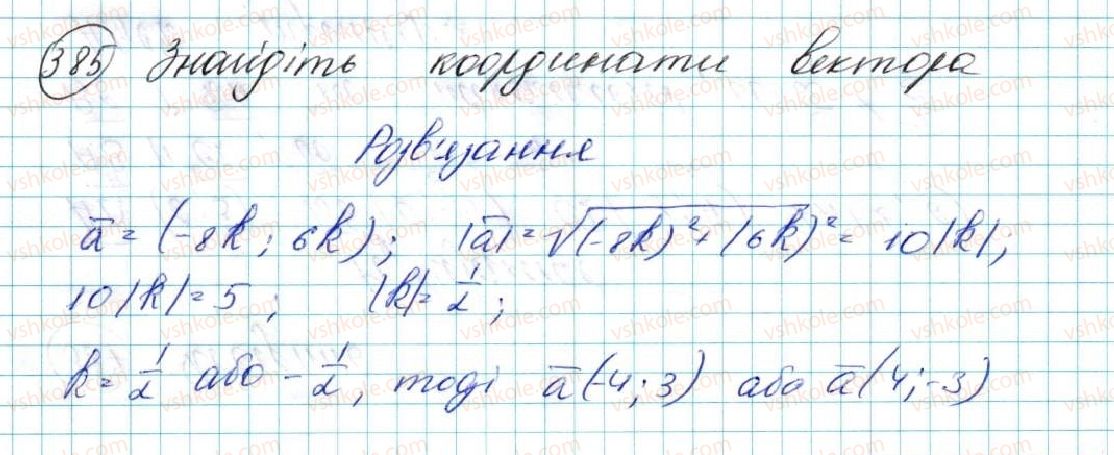 385 Знайдіть координати вектора
Розв'язання
a̅ = (-8k; 6k); |a̅| = √(-8k)² + (6k)² = 10|k|;
10|k| = 5; |k| = 1/2;
k = 1/2 або -1/2, тоді a̅(-4; 3) або a̅(4; -3)